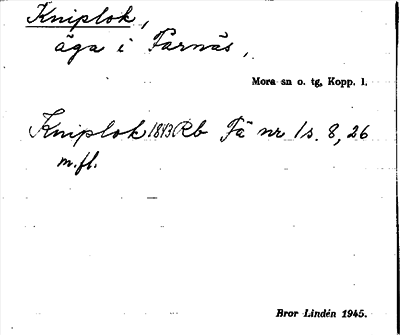 Kniplok,
äga i Farnäs,
Mora sn o. tg, Kopp. l.
Kniplok 1843 Rb Fä nr 1 s. 8, 26
m.fl.
Bror Lindén 1945.